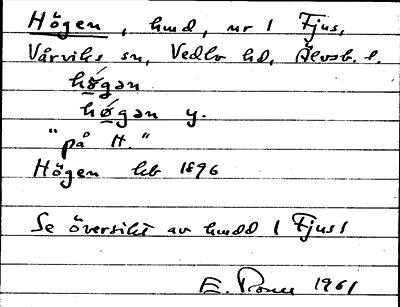 Högen, hmd, nr 1 Fjus,
Vårviks sn, Vedbo hd, Älvsb. l.
hö́gən
hö́gən y.
"på H."
Högen kb 1896
Se översikt av hmdd 1 Fjus 1
E. 1961